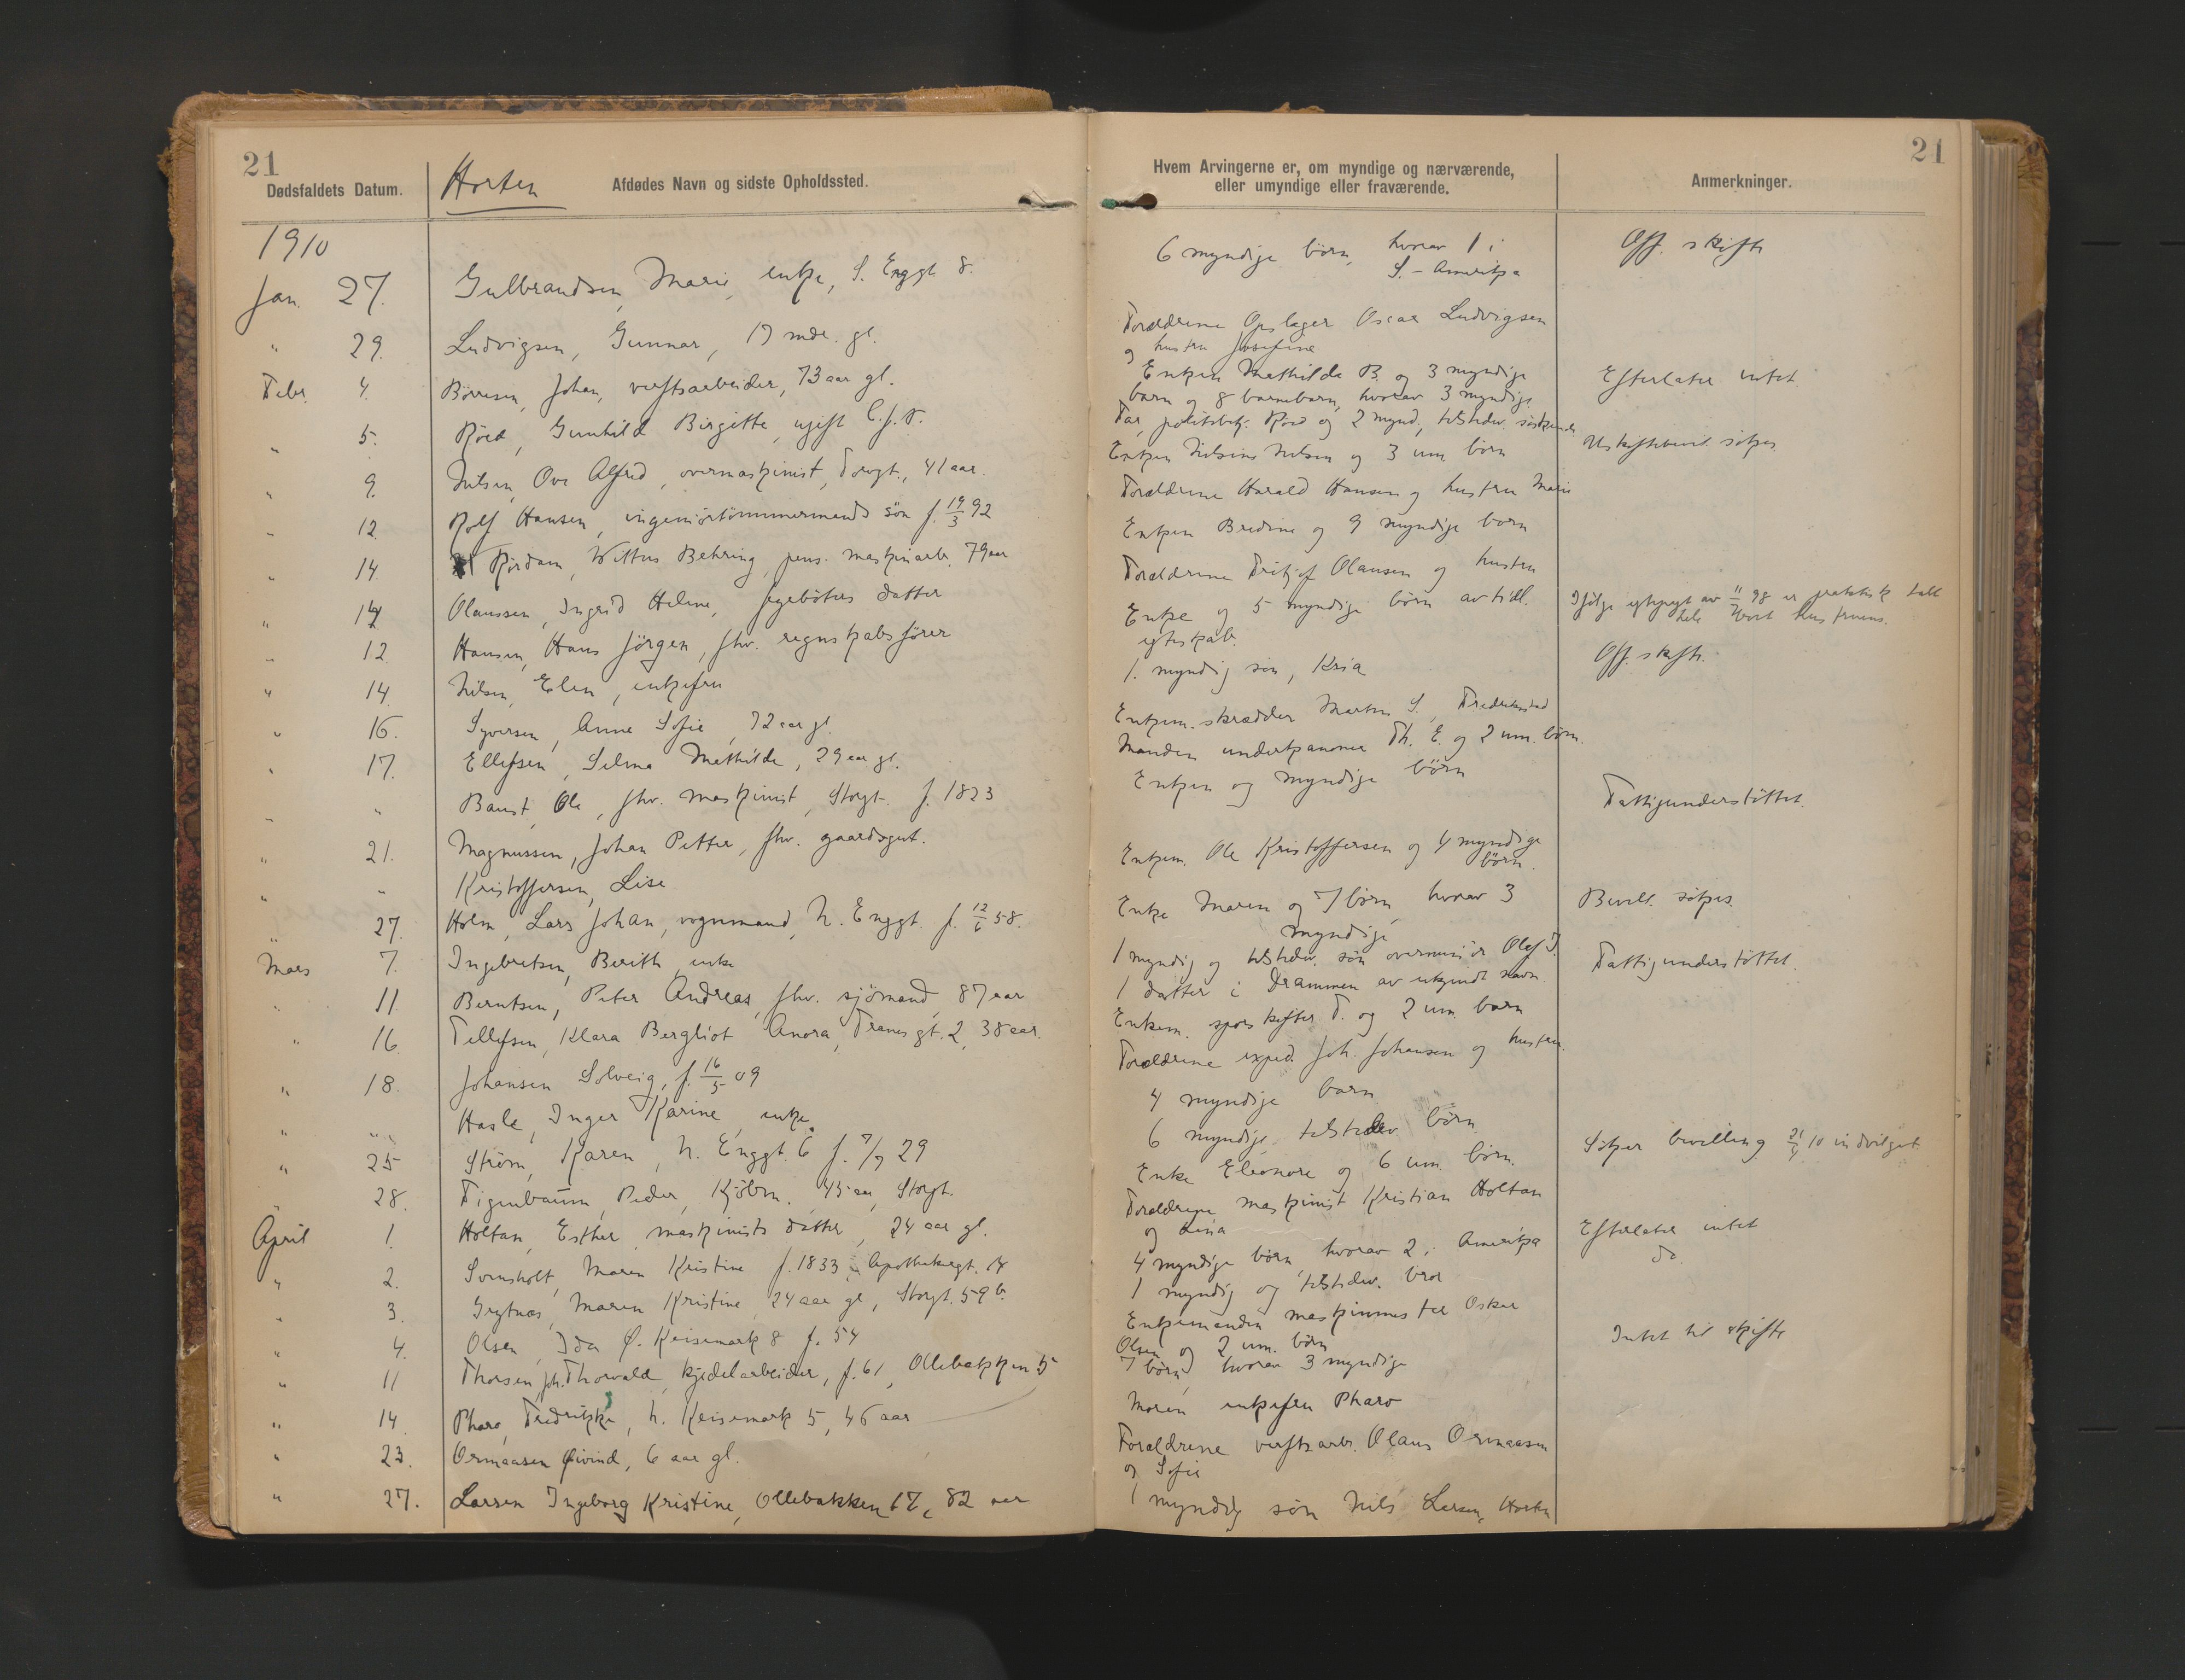 21
Dødsfaldets Datum.
Horten
Afdødes Navn og sidste Opholdssted.
1910
Jan. 27. Gulbrandsen, Marie, enke, S. Enggt 8.
" 29. Ludvigsen, Gunnar, 17 mdr. gl.
Febr. 4. Börresen, Johan, verftsarbeider, 73 aar gl.
" 5. Röed, Gunhild Birgitte, ugift
" 9. Nilsen, Ove Alfred, overmaskinist, Torvgt., 41 aar.
" 12. Rolf Hansen, ingeniörtömmermands sön f. 19/3 92
" 14. Rördam, Wittus Behring, pens. maskinarb. 79 aar
" 14 Olaussen, Ingrid Helene, fyrböters datter
" 12. Hansen, Hans Jörgen, fhv. regnskabsförer
" 14. Nilsen, Elen, enkefru
" 16. Syversen, Anne Sofie, 72 aar gl.
" 17. Ellefsen, Selma Mathilde, 29 aar gl.
" " Baust, Ole, fhv. maskinist, Storgt. f. 1823
" 21. Magnussen, Johan Petter, fhv. gaardsgut.
" " Kristoffersen, Lise
" 27. Holm, Lars Johan, vognmand, N. Enggt. f. 12/6 58.
Mars 7. Ingebretsen, Berith enke
" 11. Berntsen, Peter Andreas, fhv. sjömand, 87 aar
" 16. Tellefsen, Klara Bergliot Anora, Tranesgt. 2, 38 aar.
" 18. Johansen Solveig, f. 16/5 09
" " Hasle, Inger Karine, enke
" 25 Ström, Karen, N. Enggt. 6 f. 7/7 29
" 28. Figenbaum, Peder, Kjöbm. 45 aar, Storgt.
April 1. Holtan, Esther, maskinists datter, 24 aar gl.
" 2. Svinsholt, Maren Kristine f. 1833, Apothekergt.
" 3. Grytnæs, Maren Kristine, 24 aar gl, Storgt. 59 b.
" 4. Olsen, Ida Ø. Keisemark 8 f. 54
" 11 Thorsen, Joh. Thorvald, kjedelarbeider, f. 61, Ollebakken 5
" 14. Pharo, Fredrikke, N. Keisemark 5, 46 aar
" 23. Ormaasen Øivind, 6 aar gl.
" 27. Larsen Ingeborg Kristine, Ollebakken 17, 82 aar
21
Hvem Arvingerne er, om myndige og nærværende,
eller umyndige eller fraværende.
Anmerkninger.
6 myndige börn, hvorav 1 i
S. - Amerika
Off. skifte
Forældrene Opslager Oscar Ludvigsen
og hustru Josefine
Enken Mathilde B. og 3 myndige
Efterlater intet.
barn og 8 barnebarn, hvorav 3 myndige
Far, politibetj. Röed og 2 mynd., tilstedev. söskende
Enken Nilsine Nilsen og 3 um börn
Uskiftebevil. sökes
Forældrene Harald Hansen og hustru Marie
Enken Bredine og 9 myndige barn
Forældrene Fritjof Olausen og hustru
Enke og 5 myndige börn av tidl.
egteskab.
Ifölge av 11/ 98 er praktisk talt
hele boet hustruens.
1. myndig sön, Kria
Off. skifte.
Enkem. skrædder Martin S., Fredrikstad
Manden underkanoner Th. E. og 2 um. börn.
Enken og myndige börn
Fattigunderstöttet.
Enkem. Ole Kristoffersen og 4 myndige
börn.
Enke Maren og 7 börn, hvorav 3
myndige
Bevill. sökes.
1 myndig og tilstedev. sön overminör Olaf I.
Fattigunderstöttet.
1 datter i Drammen av ukjendt navn
Enkem. sporskifter T. og 2 um. barn
Forældrene exped. Joh. Johansen og hustru.
4 myndige barn
6 myndige, tilstedev. börn.
Söker bevilling 21/4 10 indvilget
Enke Eleonore og 6 um. börn.
Forældrene maskinist Kristian Holtan
og Lina
4 myndige börn, hvorav 2 i Amerika
Efterlater intet
1 myndig og tilstedev. bror
do.
Enkemanden maskinmester Oskar
Olsen og 2 um. börn
Intet til skifte
7 börn, hvorav 3 myndige
Moren enkefru Pharo
Forældrene verftsarb. Olaus Ormaasen
og Sofie
1 myndig sön Nils Larsen, Horten